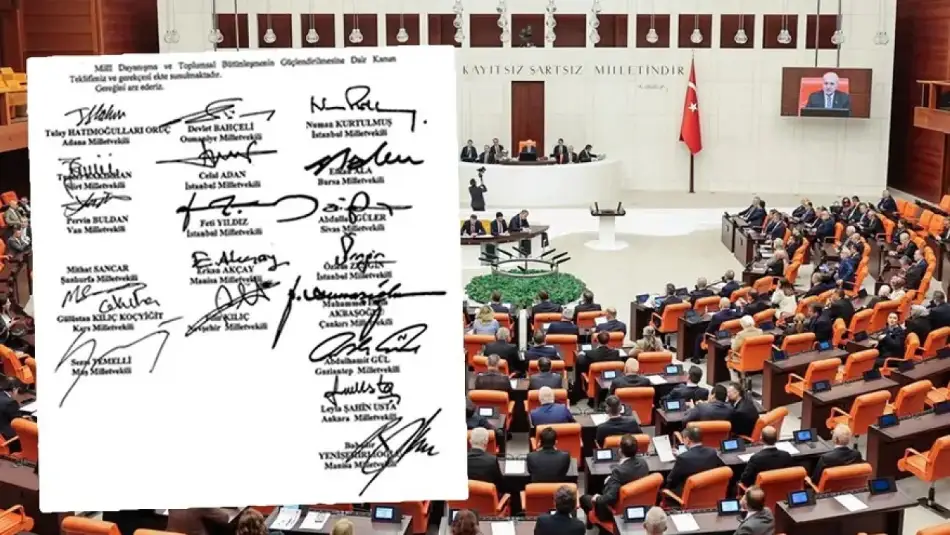 Millî Dayanışma ve Toplumsal Bütünleşmenin Güçlendirilmesine Dair Kanun
Teklifimiz ve gerekçesi ekte sunulmaktadır.
Gereğini arz ederiz.
Tulay HATIMOĞULLARI ORUÇ
Adana Milletvekili
Milletvekili
Pervin BULDAN
Van Milletvekili
Mithat SANCAR
Şanlıurfa Milletvekili
Gülüstan KILIÇ KOÇYİĞİT
Kars Milletvekili
Sezai TEMELLİ
Muş Milletvekili
Devlet BAHÇELİ
Osmaniye Milletvekili
Celal ADAN
İstanbul Milletvekili
Feti YILDIZ
İstanbul Milletvekili
Erkan AKÇAY
Manisa Milletvekili
KILIÇ
Nevşehir Milletvekili
Numan KURTULMUŞ
İstanbul Milletvekili
ALA
Bursa Milletvekili
Abdullah GÜLER
Sivas Milletvekili
İstanbul Milletvekili
AKBAŞOĞLU
Çankırı Milletvekili
Abdulhamit GÜL
Gaziantep Milletvekili
Leyla ŞAHİN USTA
Ankara Milletvekili
YENİŞEHİRLİOĞLU
Manisa Milletvekili
KAYITSIZ ŞARTSIZ MİLLETİNDİR